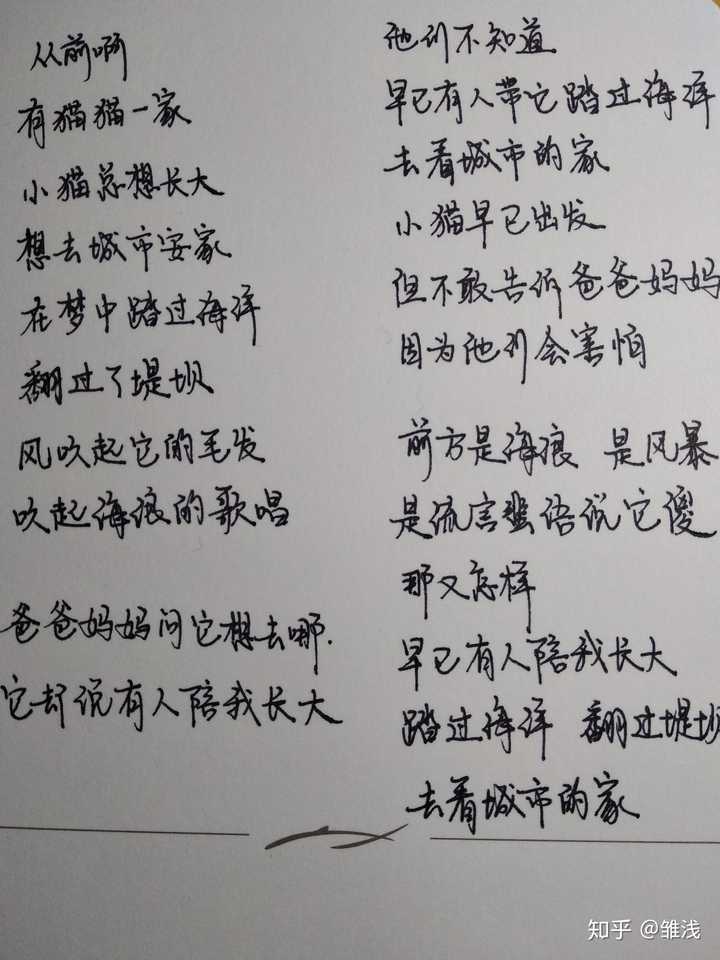 从前啊
有猫猫一家
小猫总想长大
想去城市安家
在梦中踏过海洋
翻过了堤坝
风吹起它的毛发
吹起海浪的歌唱
爸爸妈妈问它想去哪.
它却说有人陪我长大
他们不知道
早已有人带它踏过海洋
去看城市的家
小猫早已出发
但不敢告诉爸爸妈妈
因为他们会害怕
前方是海浪 是风暴
是流言蜚语说它傻
那又怎样
早已有人陪我长大
踏过海洋 翻过堤坝
去看城市的家
知乎 @雏浅